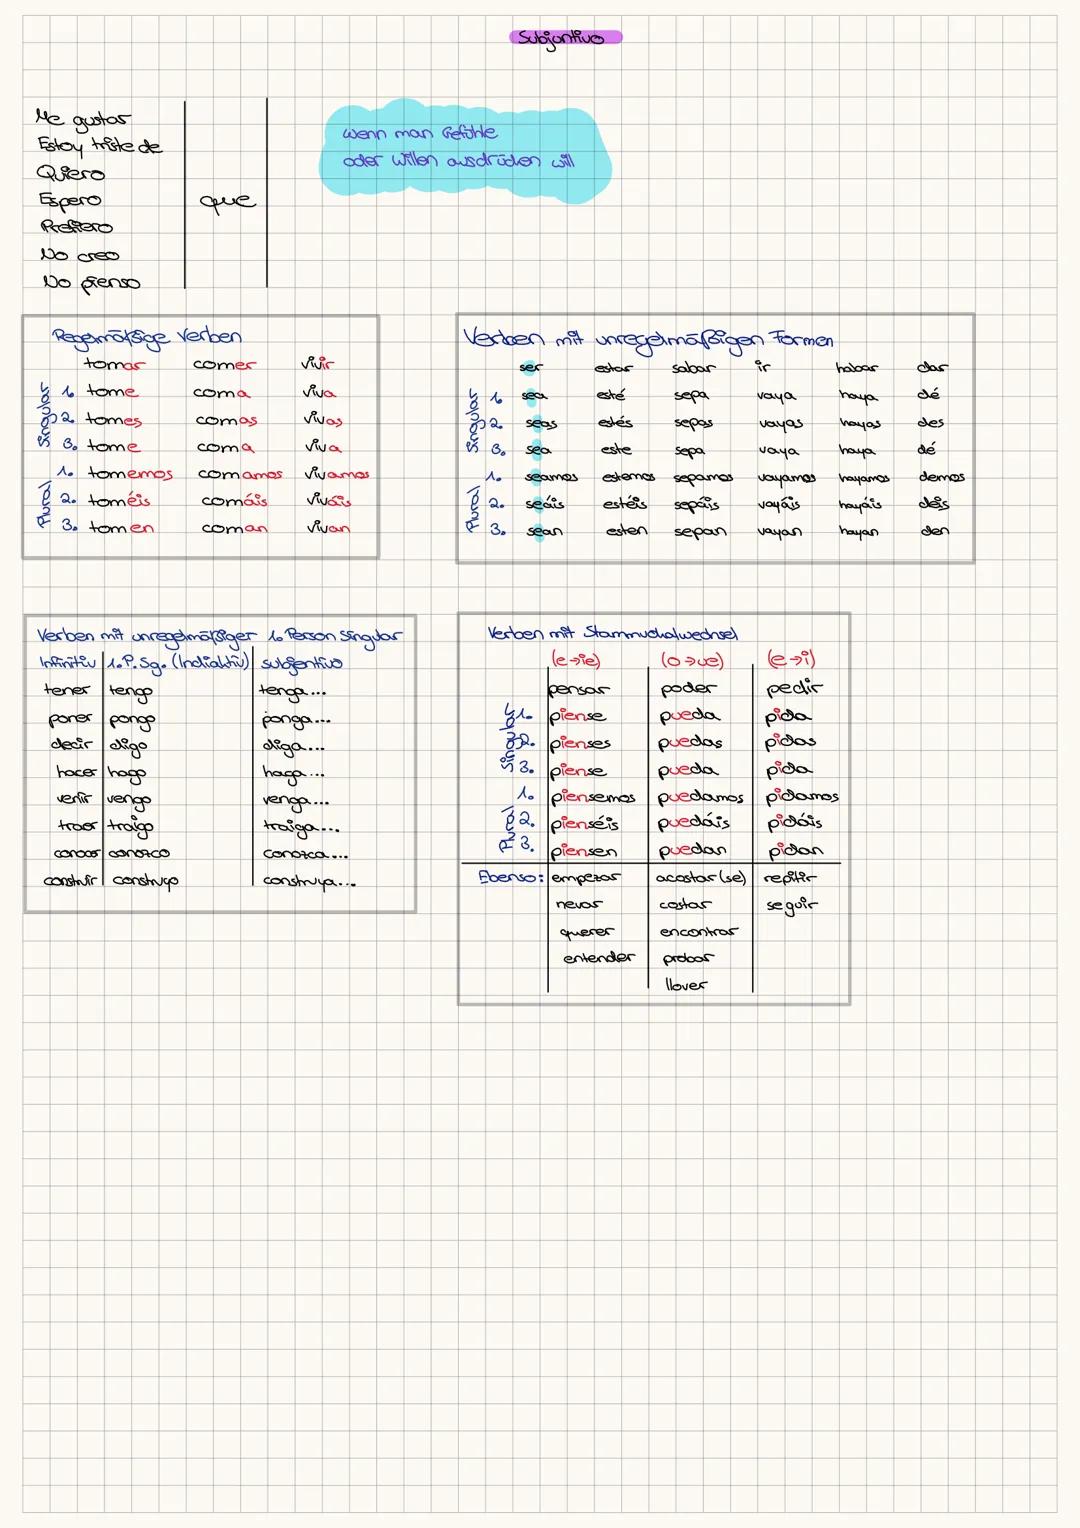 Subjontivo
Me gustar
Estoy triste de
Quiero
Espero
Prefiero
No creo
No pienso
que
wenn man Gefühle
oder Willen ausdrücken will
Regelmäßige Verben
tomar comer vivir
Singular 1. tome coma viva
2. tomes comas vivas
3. tome coma viva
Plural 1. tomemos comamos vivamos
2. toméis comáis viváis
3. tomen coman vivan
Verben mit unregelmäßigen Formen
ser estar sabar ir habar dar
Singular 1. sea esté sepa vaya haya dé
2. seas estés sepas vayas hayas des
3. sea este sepa vaya haya dé
Plural 1. seamos estemos sepamos vayamos hayamos demos
2. seáis estéis sepáis vayáis hayáis deis
3. sean esten sepan vayan hayan den
Verben mit unregelmäßiger 1. Person Singular
Infinitiv 1. P. Sg. (Indikativ) subjentivo
tener tengo tenga...
poner pongo ponga...
decir digo diga...
hacer hago haga...
venir vengo venga...
traer traigo traiga...
conocer conozco conozca...
construir construyo construya...
Verben mit Stammvokalwechsel
(e→ie) (o→ue) (e→i)
pensar poder pedir
Singular 1. piense pueda pida
2. pienses puedas pidas
3. piense pueda pida
Plural 1. piensemos puedamos pidamos
2. pienséis puedáis pidáis
3. piensen puedan pidan
Ebenso: empezar acostar (se) repitir
nevar costar seguir
querer encontrar
entender probar
llover